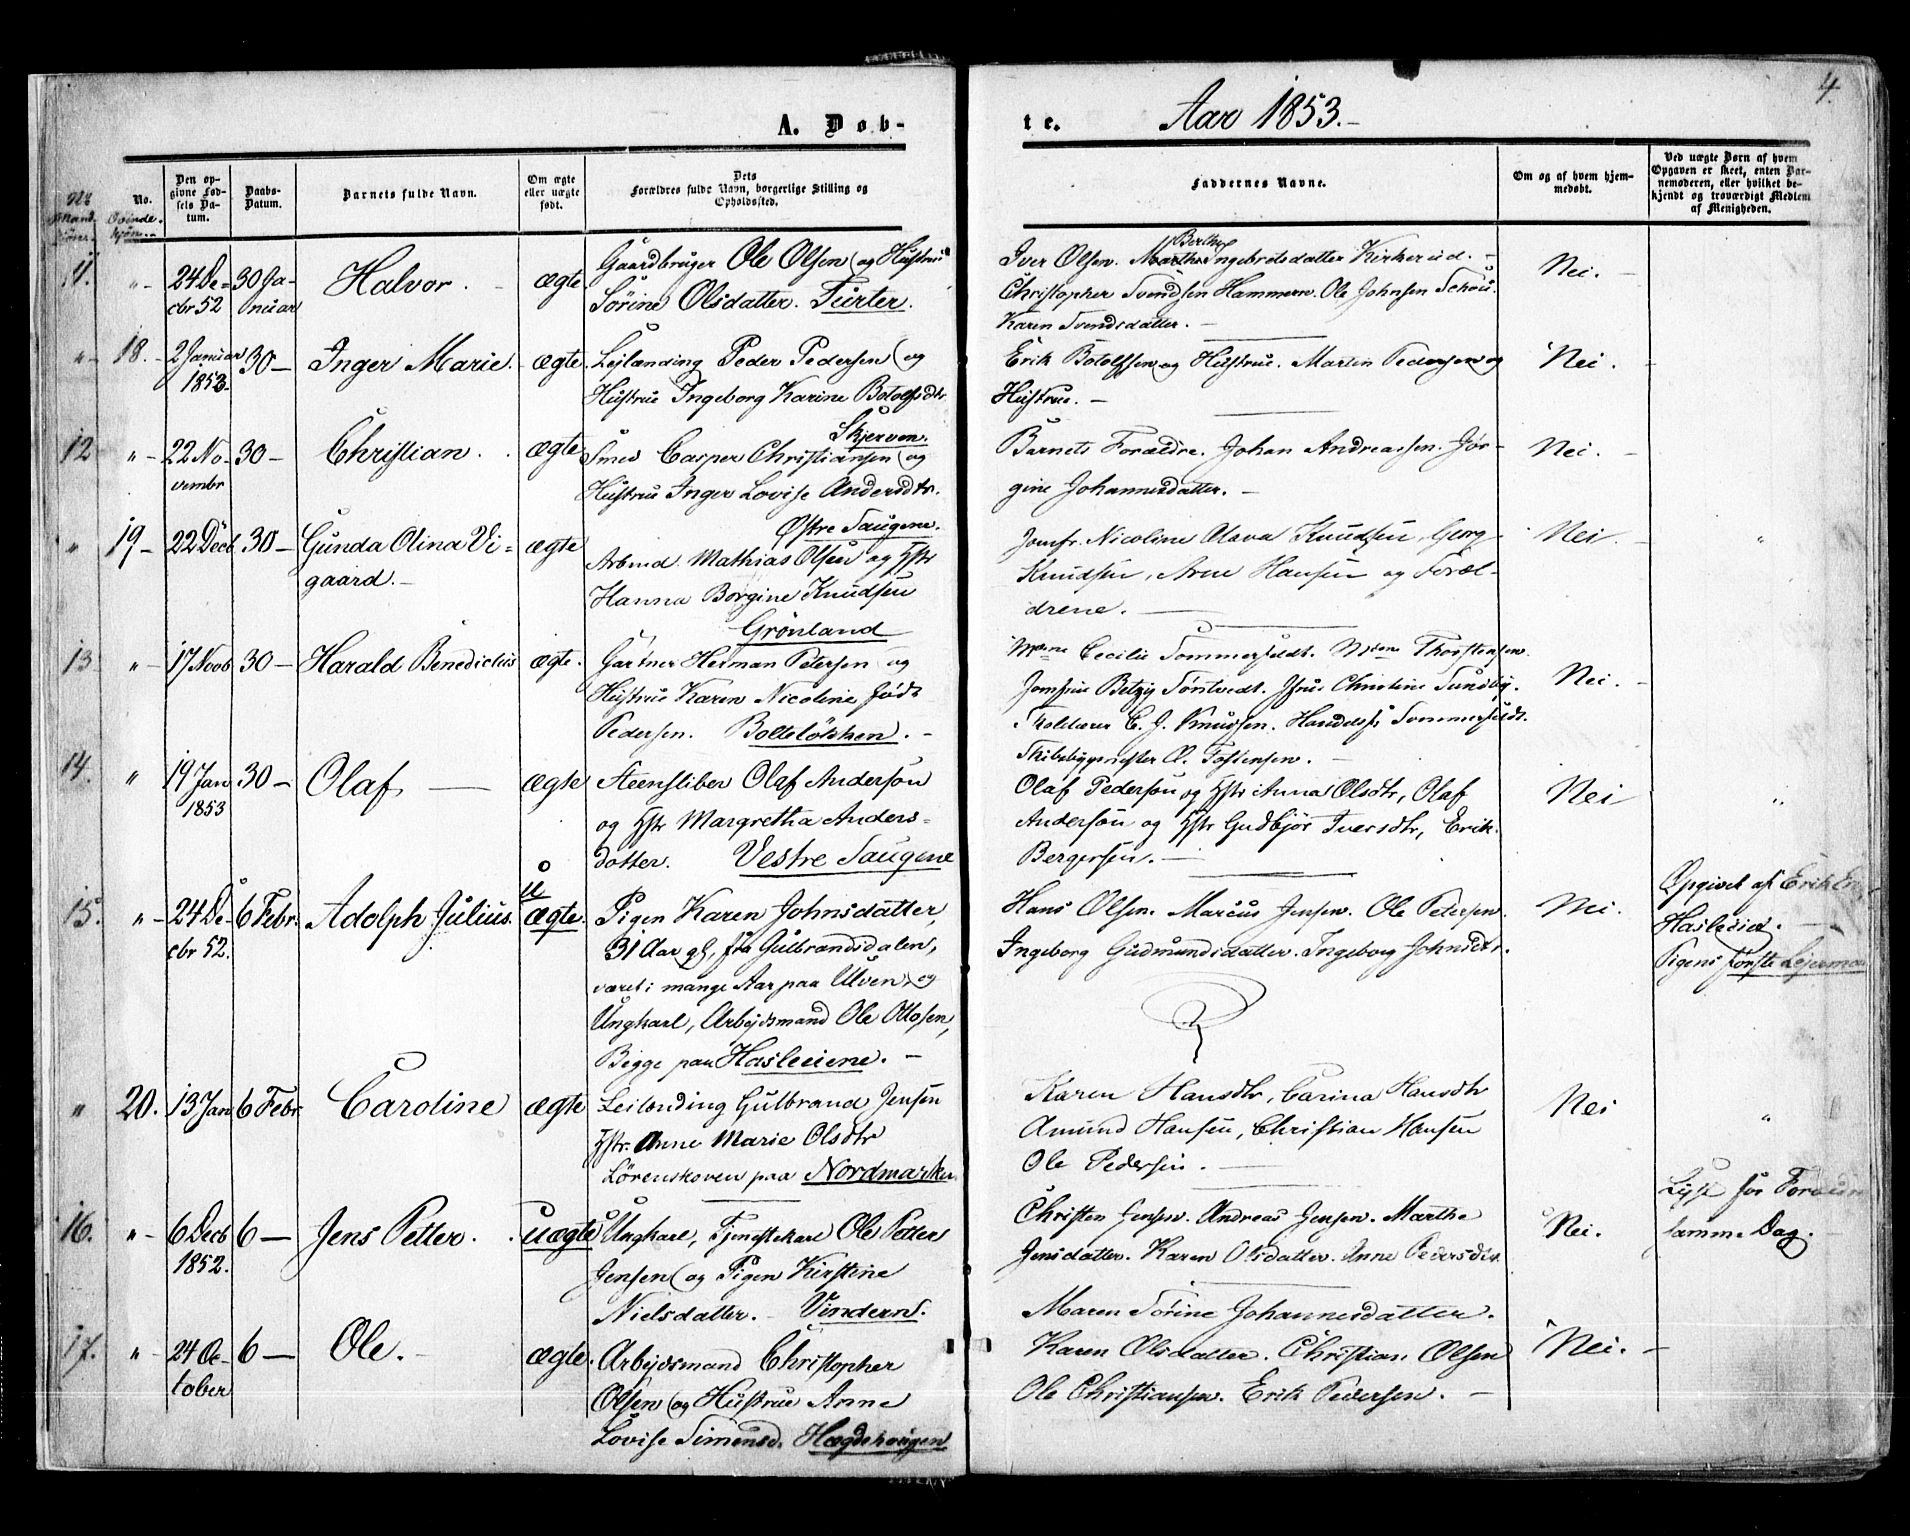 4.
A. Døb-
te. Aar 1853.-
No. Mandkjøn.
No. Qvindekjøn.
Den opgivne Fødsels Datum.
Daabs-Datum.
Barnets fulde Navn.
Om ægte eller uægte født.
Dets Forældres fulde Navn, borgerlige Stilling og Opholdssted.
Faddernes Navne.
Om og af hvem hjemmedøbt.
Ved uægte Børn af hvem Opgaven er skeet, enten Barnemoderen, eller hvilket bekjendt og troværdigt Medlem af Menigheden.
11. "- 24 De- 30 Ja- Halvor. ægte
cbr 52 nuar
Gaardbruger Ole Olsen og Hustrue
Sørine Olsdatter. Turter.
Iver Olsen. Berthe Ingebretsdatter Kirkerud.
Christopher Svendsen Hammern. Ole Johnsen Schou.
Karen Svendsdatter. -
Nei.
"- 18.- 2 Januar 30- Inger Marie. ægte.
1853.
Leilænding Peder Pedersen og
Hustrue Ingeborg Karine Botolfsdtr.
Skjerven.
Erik Botolfsen og Hustrue. Martin Pedersen og
Hustrue. -
Nei.
12 "- 22 No- 30- Christian. ægte
vembr
Smed Casper Christiansen og
Hustrue Inger Lovise Andersdtr.
Østre Saugene.
Barnets Forældre. Johan Andreassen. Jør-
gine Johannesdatter. -
Nei.
" 19- 22 Decb 30- Gunda Olina Vi- ægte
gaard.-
Arbmd. Mathias Olsen og Hstr
Hanna Borgine Knudsen
Grönland
Jomfr. Nicoline Olava Knudsen, Georg
Knudsen, Arne Hansen og Foræl-
drene.
Nei. "
13 "- 17 Novb 30- Harald Benedictus ægte.
Gartner Herman Petersen og
Hustrue Karen Nicoline, født
Pedersen. Bolteløkken. -
Cecilie Sommerfeldt. Thorstensen.
Jomfrue Betzy Tøntvedt. Christine Sundby.
Toldkarer C. J. Knudsen. Sommerfeldt.
Skibsbyggmester O. Tostensen. -
Nei.
14. " 19 Jan 30- Olaf ægte
1853
Steensliber Olaf Andersøn
og Hstr Margretha Anders-
dotter. Vestre Saugene
Olaf Pedersøn og Hstr Anna Olsdtr, Olaf
Andersøn og Hstr Gudbjør Iversdtr, Erik
Bergersen. -
Nei "
15. "- 24 De- 6 Febr. Adolph Julius. uægte.
cbr 52.
Pigen Karen Johnsdatter,
31 Aar gl, fra Gulbrandsdalen,
været i mange Aar paa Ulven, og
Ungkarl, Arbejdsmand Ole Ottosen,
Begge paa Hasleeiene. -
Hans Olsen. Marcus Jensen. Ole Petersen.
Ingeborg Gudmundsdatter. Ingeborg Johnsdtr.
Nei.
Opgivet af Erik
Hasleeiet.
Pigens første Leiermaal
" 20. 13 Jan 6 Febr. Caroline ægte
Leilænding Gulbrand Jensen
Hstr. Anne Marie Olsdtr
Lørenskoven paa Nordmarken
Karen Hansdtr, Carina Hansdtr
Amund Hansen, Christian Hansen
Ole Pedersen.
Nei "
16. "- 6 Decb 6- Jens Petter. uægte
1852.
Ungkarl, Tjenestekarl Ole Petter
Jensen og Pigen Kirstine
Nielsdatter. Vindern.
Christen Jensen. Andreas Jensen. Marthe
Jensdatter. Karen Olsdatter. Anne Pedersdtr.
Maren Sørine Johannesdatter.
Nei.
Lyst for Forældr
samme Dag.
17. "- 24 Oc- 6- Ole. ægte.
tober
Arbejdsmand Christopher
Olsen og Hustrue Anne
Lovise Simensd. Hægdehougen
Karen Olsdatter. Christian Olsen
Ole Christiansen. Erik Pedersen. -
Nei.